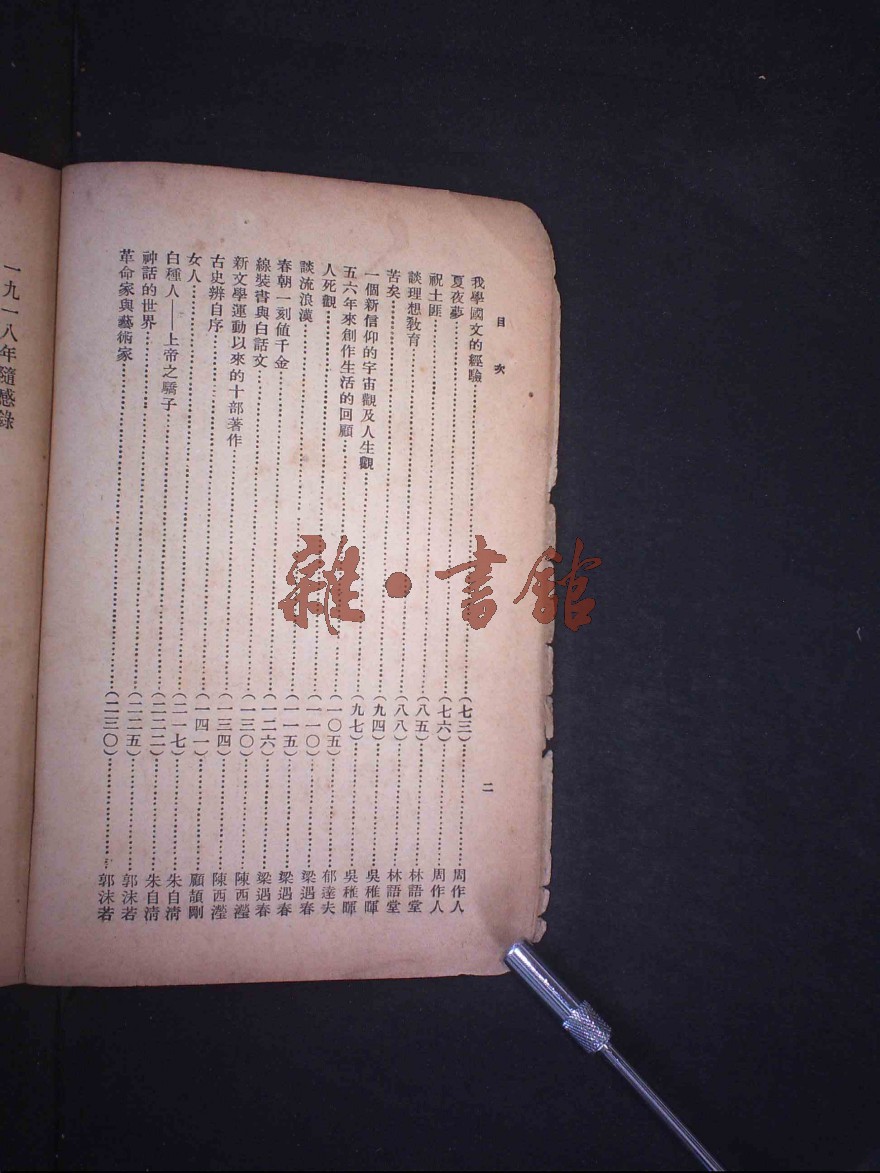 目次
二
我學國文的經驗……(七三)……周作人
夏夜夢……(七六)……周作人
祝土匪……(八五)……林語堂
談理想教育……(八八)……林語堂
苦矣……(九四)……吳稚暉
一個新信仰的宇宙觀及人生觀……(九七)……吳稚暉
五六年來創作生活的回顧……(一〇五)……郁達夫
人死觀……(一一〇)……梁遇春
談流浪漢……(一一五)……梁遇春
春朝一刻値千金……(一二六)……梁遇春
線裝書與白話文……(一三〇)……陳西瀅
新文學運動以來的十部著作……(一三四)……陳西瀅
古史辨自序……(一四一)……顧頡剛
女人……(二一七)……朱自清
白種人——上帝之驕子……(二二二)……朱自清
神話的世界……(二二五)……郭沫若
革命家與藝術家……(二三〇)……郭沫若
一九一八年隨感錄
雜·書館